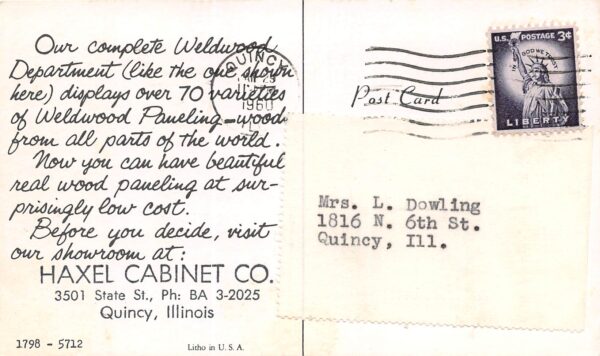 Our complete Weldwood
Department (like the one shown
here) displays over 70 varieties
of Weldwood Paneling—woods
from all parts of the world.
Now you can have beautiful
real wood paneling at sur-
prisingly low cost.
Before you decide, visit
our showroom at:
HAXEL CABINET CO.
3501 State St., Ph: BA 3-2025
Quincy, Illinois
1798 - 5712
Litho in U. S. A.
QUINCY
1960
Post Card
U.S. POSTAGE 3¢
IN GOD WE TRUST
LIBERTY
Mrs. L. Dowling
1816 N. 6th St.
Quincy, Ill.